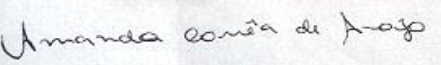 Amanda Corrêa de Araujo